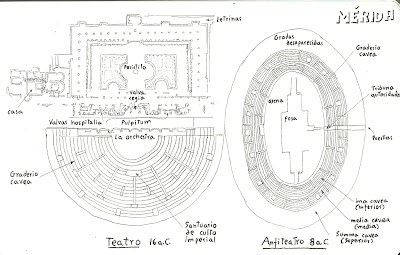 MÉRIDA
Letrinas
Peristilo
casa
valva
regia
Valvas hospitalia
Pulpitum
La orchestra
Graderío
cavea
Santuario
de culto
imperial
Teatro 16 a.C
Gradas
desaparecidas
Graderío
cavea
Tribuna
autoridades
arena
fosa
Puertas
ima cavea
(inferior)
media cavea
(media)
Summa cavea
(superior)
Anfiteatro 8 a.C